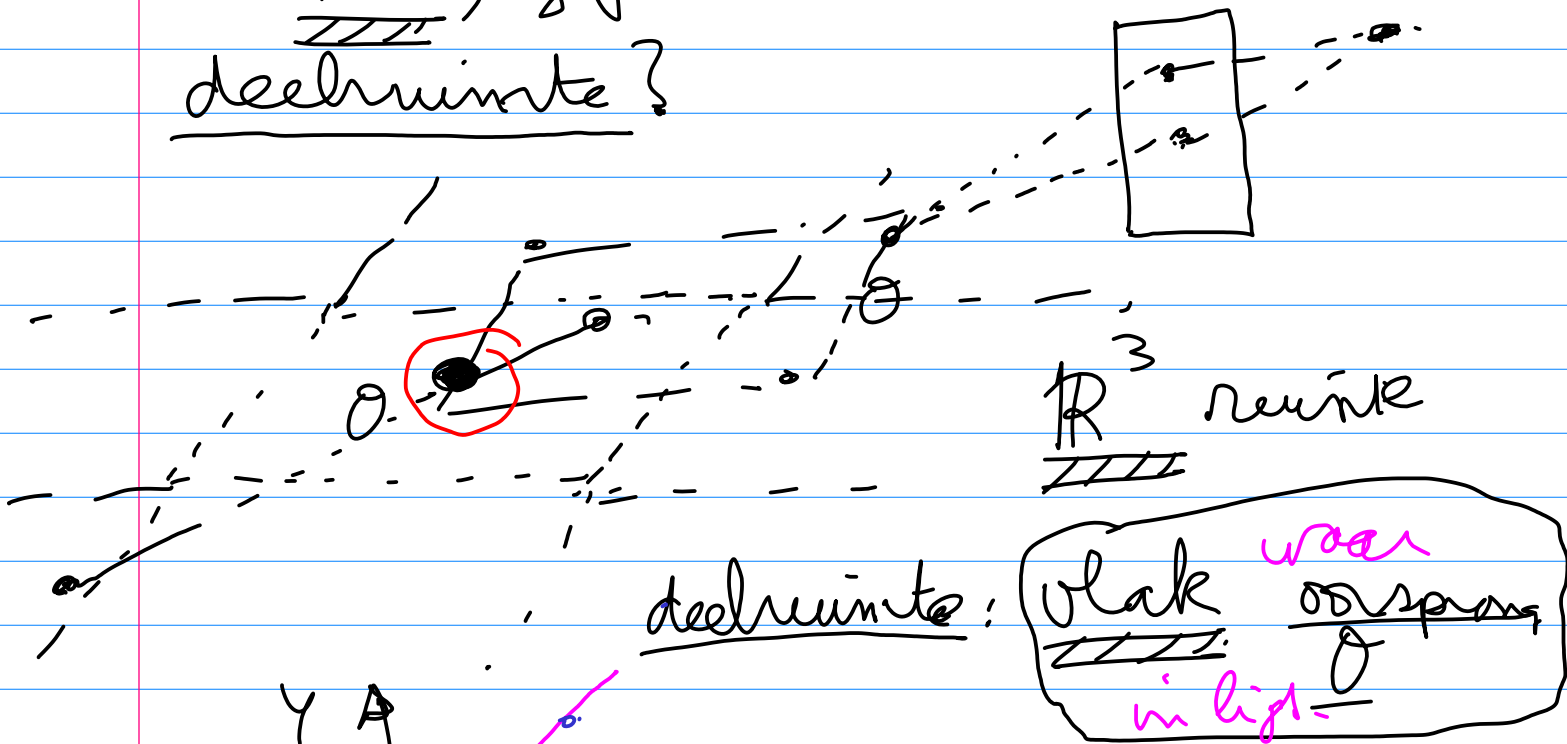 deelruimte?
O
O
ℝ³ ruimte
deelruimte: vlak waar
oorsprong
O
in ligt.
Y A